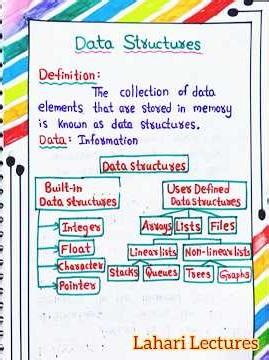 Data Structures
Definition:
The collection of data
elements that are stored in memory
is known as data structures.
Data: Information
Data Structures
Built-in
Data structures
User Defined
Data structures
Integer
Float
Character
Pointer
Arrays Lists Files
Linear lists Non-linear lists
Stacks Queues Trees Graphs
Lahari Lectures